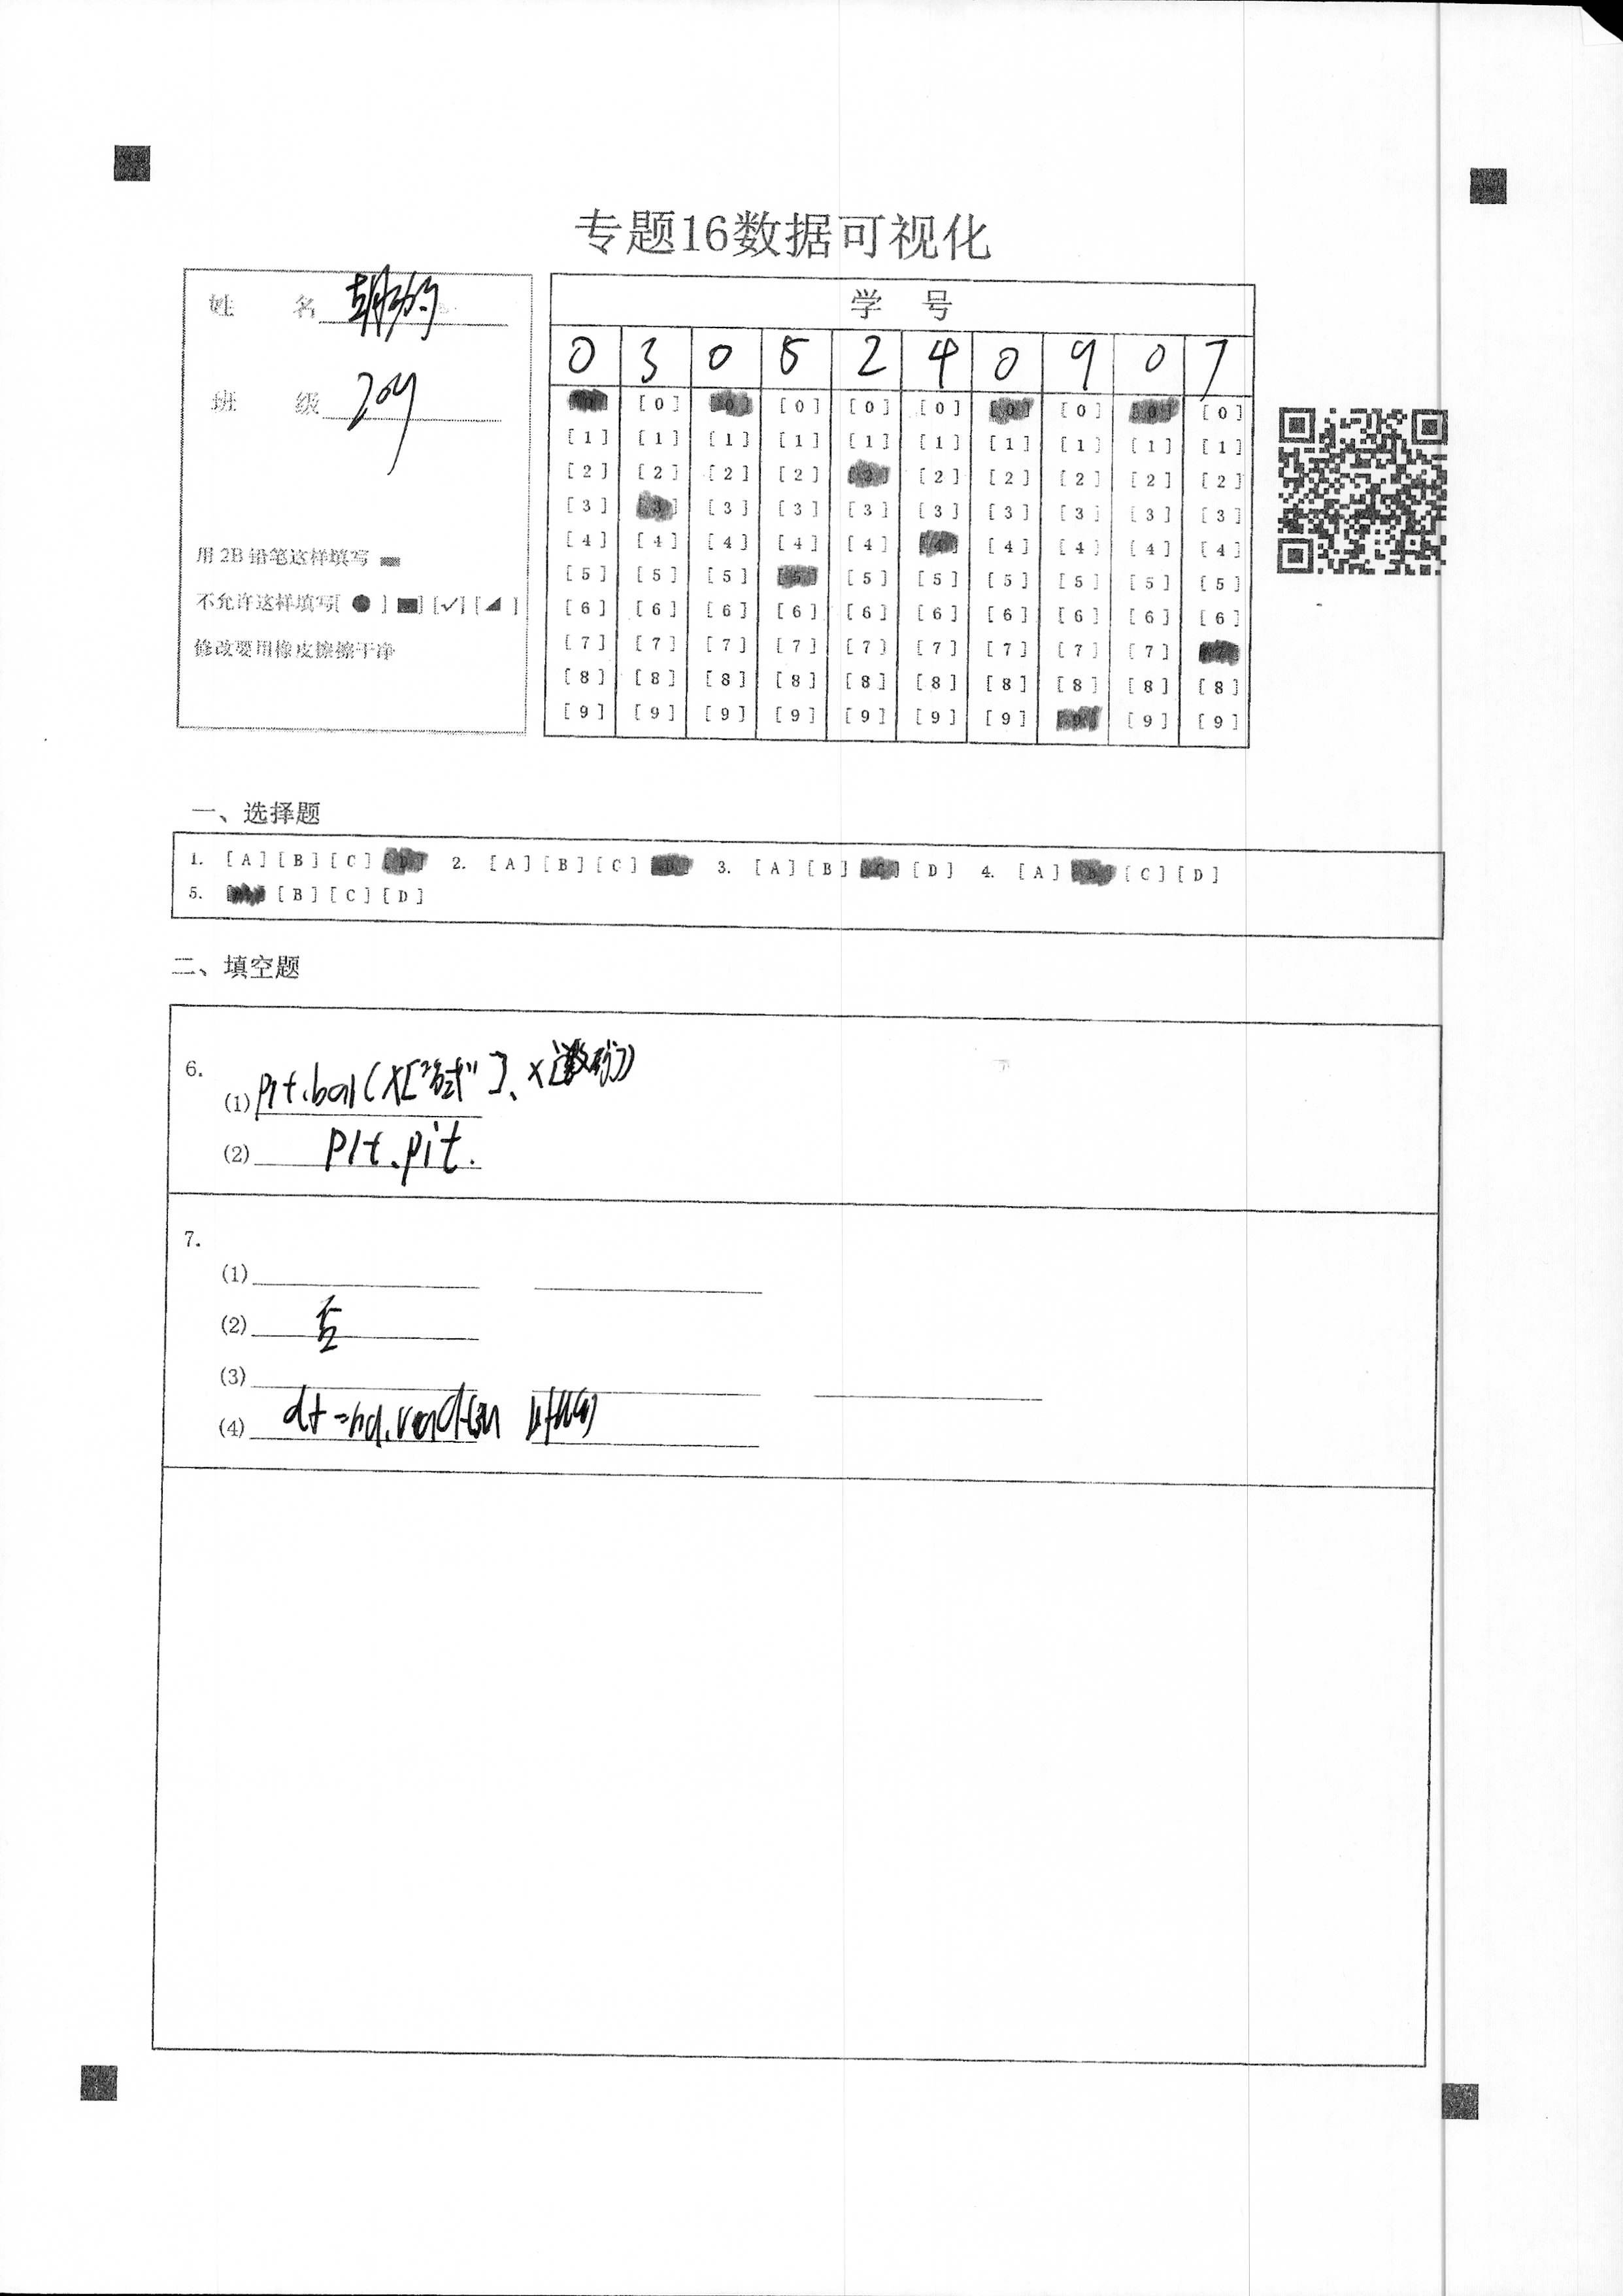 专题16数据可视化
姓 名
班 级 209
用 2B 铅笔这样填写
不允许这样填写[ ● ] ■] [✓] [◢ ]
修改要用橡皮擦擦干净
学 号
0 3 0 5 2 4 0 9 0 7
[0] [0] [0] [0] [0] [0] [0] [0] [0] [0]
[1] [1] [1] [1] [1] [1] [1] [1] [1] [1]
[2] [2] [2] [2] [2] [2] [2] [2] [2] [2]
[3] [3] [3] [3] [3] [3] [3] [3] [3] [3]
[4] [4] [4] [4] [4] [4] [4] [4] [4] [4]
[5] [5] [5] [5] [5] [5] [5] [5] [5] [5]
[6] [6] [6] [6] [6] [6] [6] [6] [6] [6]
[7] [7] [7] [7] [7] [7] [7] [7] [7] [7]
[8] [8] [8] [8] [8] [8] [8] [8] [8] [8]
[9] [9] [9] [9] [9] [9] [9] [9] [9] [9]
一、选择题
1. [A] [B] [C] [D] 2. [A] [B] [C] [D] 3. [A] [B] [C] [D] 4. [A] [B] [C] [D]
5. [A] [B] [C] [D]
二、填空题
6.
(1)
(2) plt.pit.
7.
(1)
(2) 否
(3)
(4)